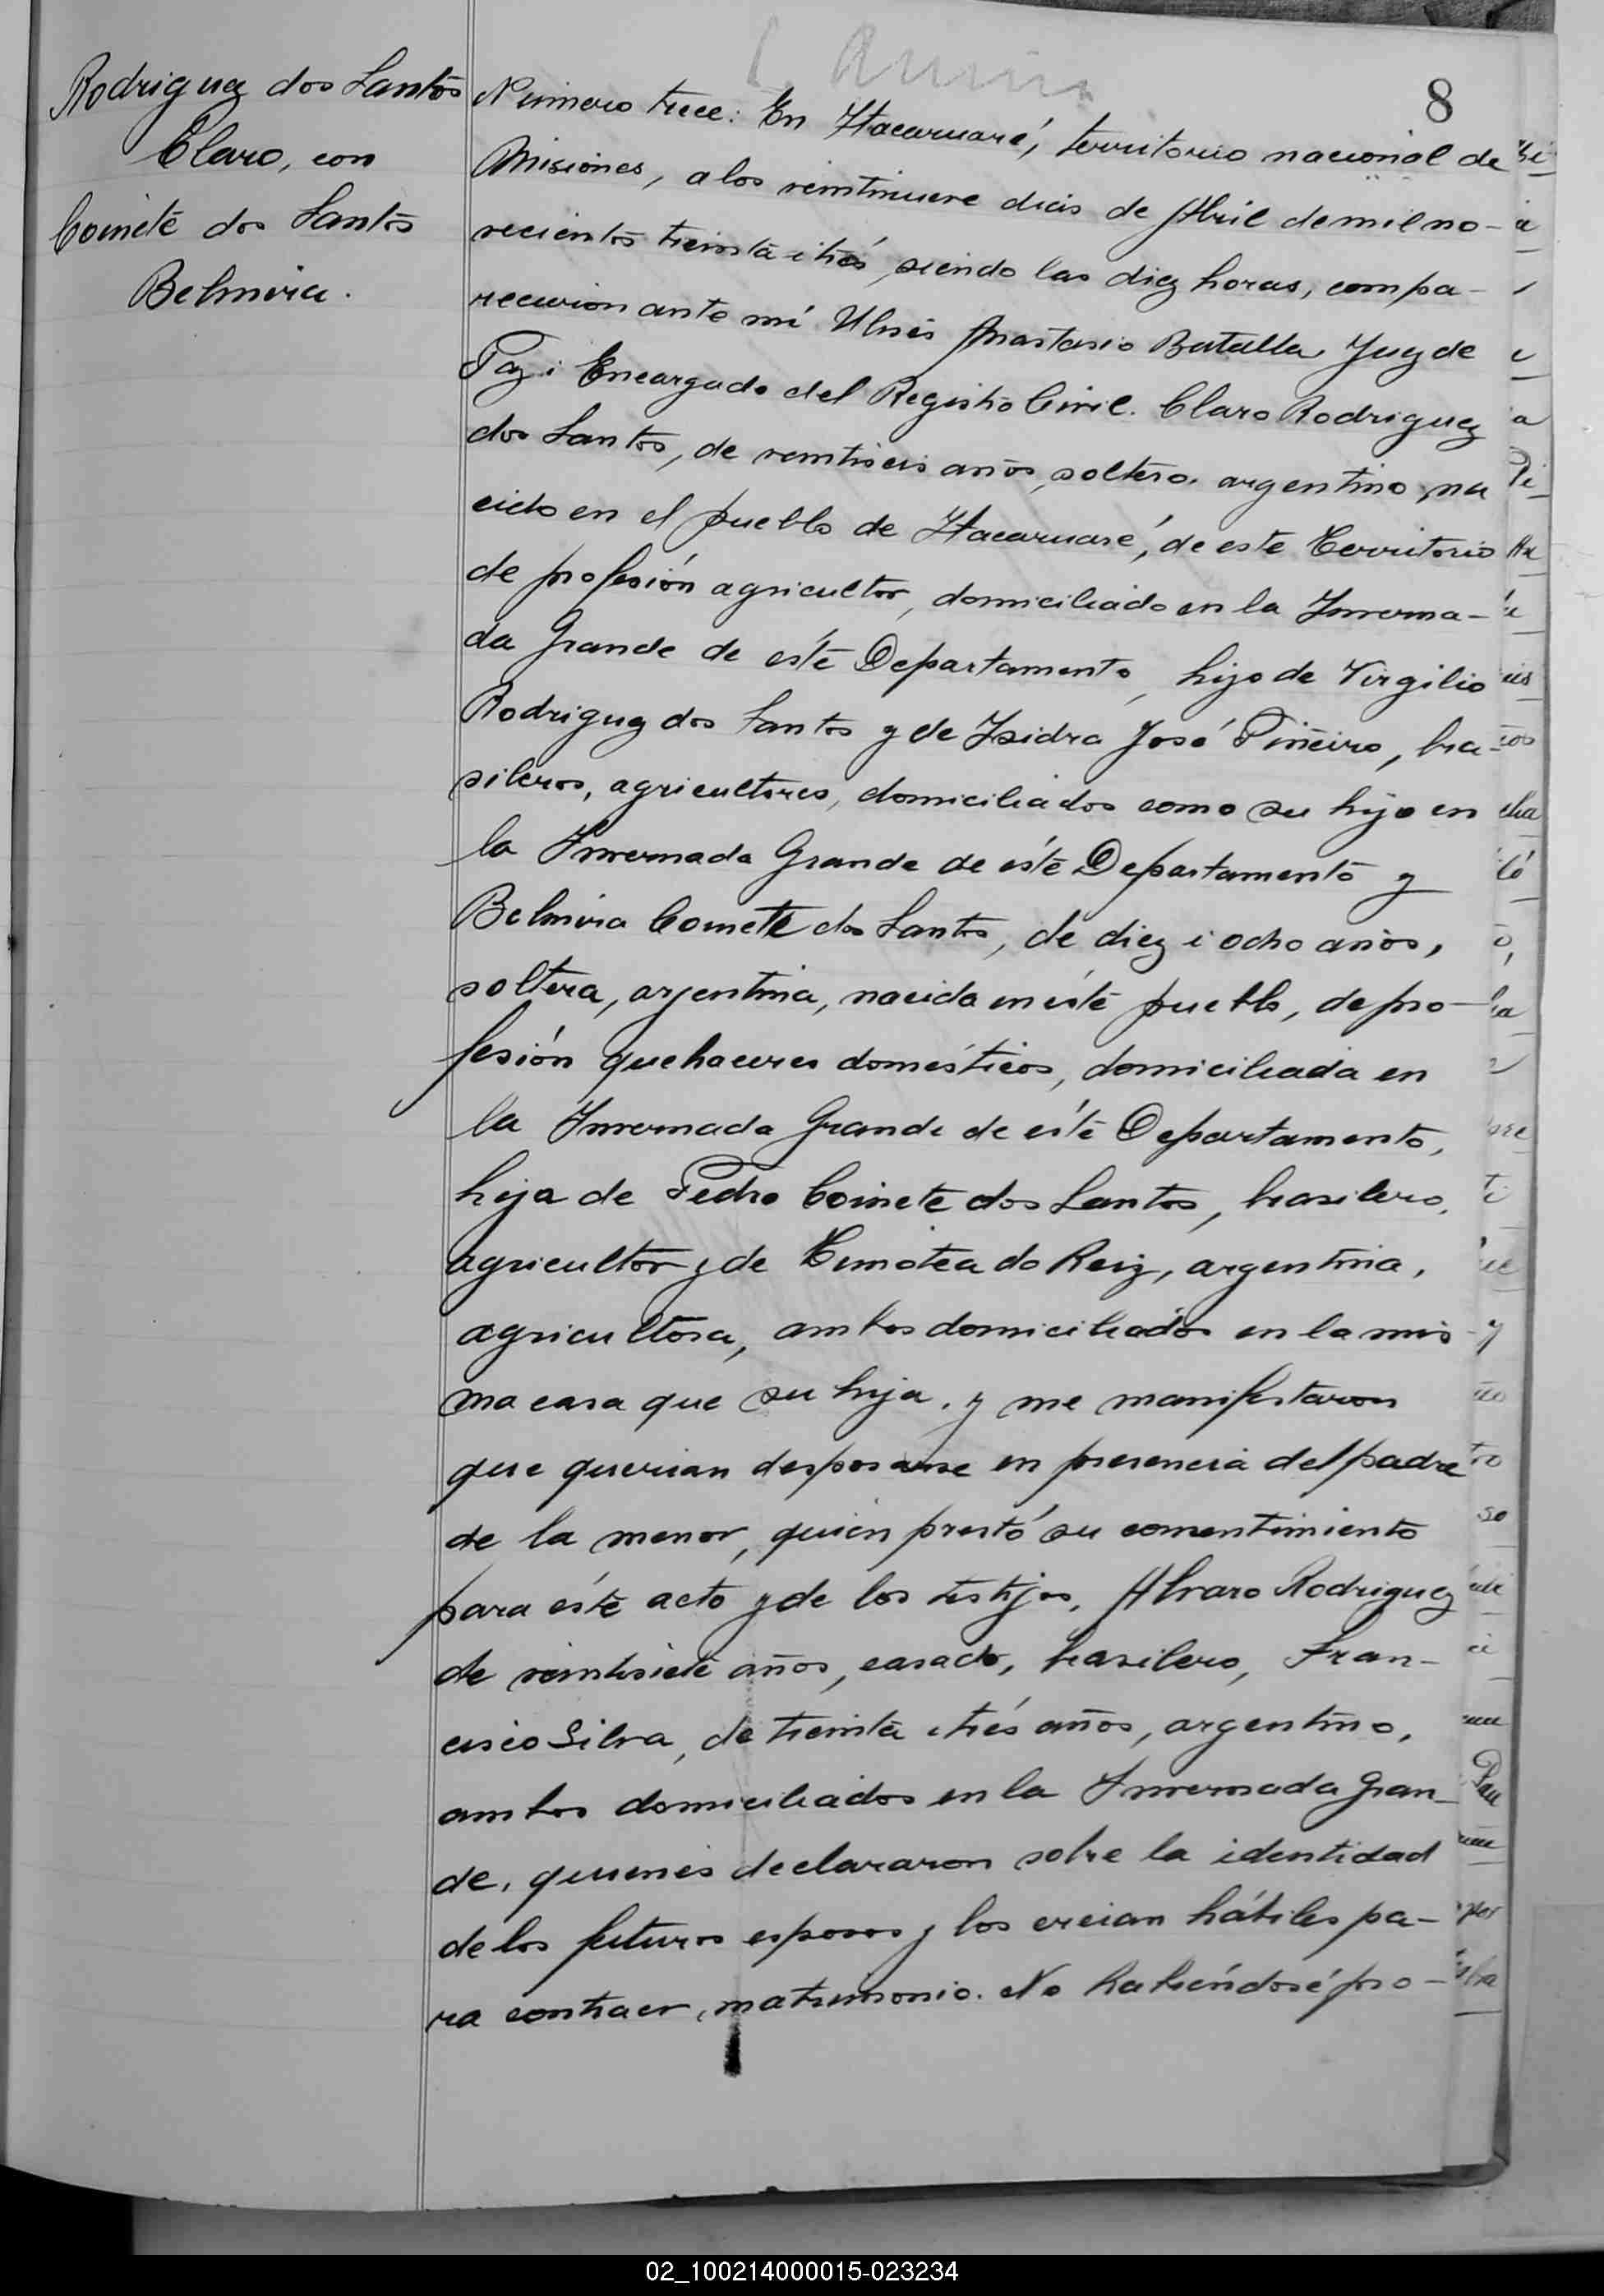 8
Rodriguez dos Santos
Claro, con
Coimeté dos Santos
Belmira.
Número trece: En Itacaruaré, territorio nacional de
Misiones, a los veintinueve dias de Abril de mil no-
vecientos treinta i trés, siendo las diez horas, compa-
recieron ante mi Ulises Anastasio Batalla, Juez de
Paz i Encargado del Registro Civil. Claro Rodriguez
dos Santos, de veintiseis años, soltero, argentino, na
cido en el pueblo de Itacaruaré, de este Territorio
de profesión agricultor, domiciliado en la Inverna-
da Grande de este Departamento, hijo de Virgilio
Rodriguez dos Santos y de Isidra José Piñeiro, bra-
sileros, agricultores, domiciliados como su hijo en
la Invernada Grande de éste Departamento y
Belmira Comete dos Santos, de diez i ocho años,
soltera, argentina, nacida en éste pueblo, de pro-
fesión quehaceres domésticos, domiciliada en
la Invernada Grande de éste Departamento,
hija de Pedro Coimete dos Santos, brasilero,
agricultor y de Timotea do Reiz, argentina,
agricultora, ambos domiciliados en la mis
ma casa que su hija. y me manifestaron
que querian desposarse en presencia del padre
de la menor, quién prestó su consentimiento
para éste acto y de los testijos, Alvaro Rodriguez
de veintisiete años, casado, brasilero, Fran-
cisco Silva, de treinta i trés años, argentino,
ambos domiciliados en la Invernada Gran-
de, quienes declararon sobre la identidad
de los futuros esposos y los creian hábiles pa-
ra contraer matrimonio. No habiéndosé pro-
02_100214000015-023234